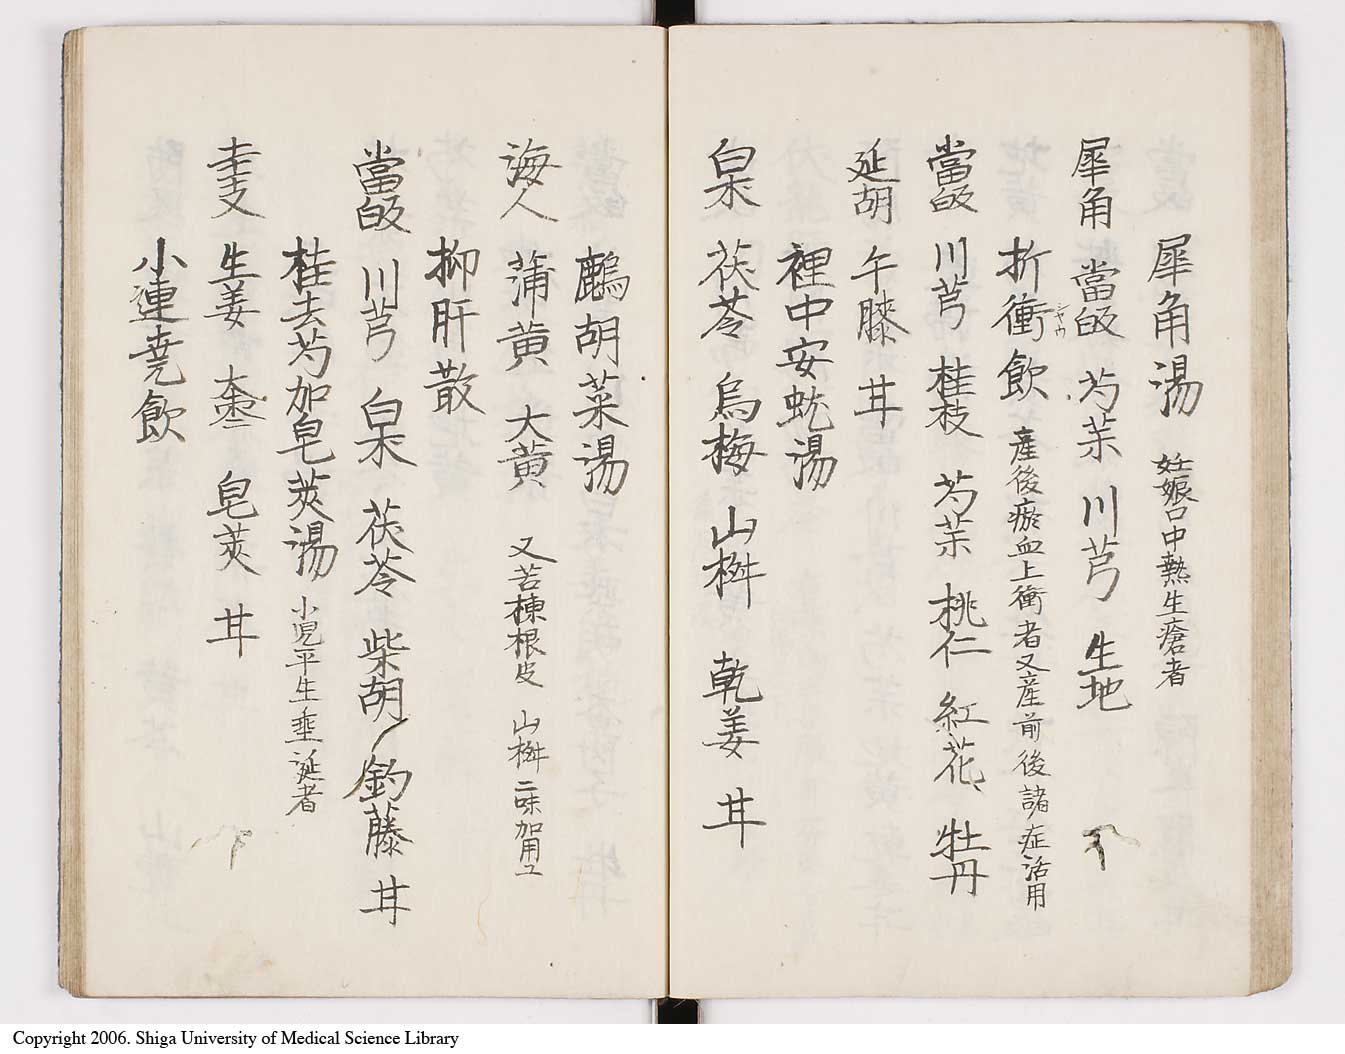 犀角湯 妊娠口中熱生瘡者
犀角 當皈 芍茱 川芎 生地
折衝飲 產後瘀血上衝者又產前後諸症活用
シヤウ
當皈 川芎 桂枝 芍茱 桃仁 紅花 牡丹
延胡 午膝 甘
裡中安蚘湯
白朮 茯苓 烏梅 山椒 乾姜 甘
鷓胡菜湯
海人 蒲黄 大黄 又苦楝根皮 山椒 二味加用ユ
抑肝散
當皈 川芎 白朮 茯苓 柴胡 釣藤 甘
桂去芍加皂莢湯 小児平生垂涎者
圭支 生姜 大棗 皂莢 甘
小連翹飲
Copyright 2006. Shiga University of Medical Science Library